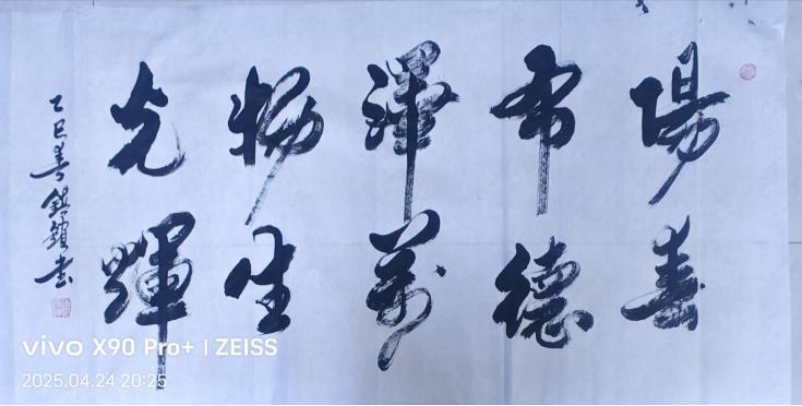 陽春
布德
澤萬
物生
光輝
乙巳春書
vivo X90 Pro+ | ZEISS
2025.04.24 20:25